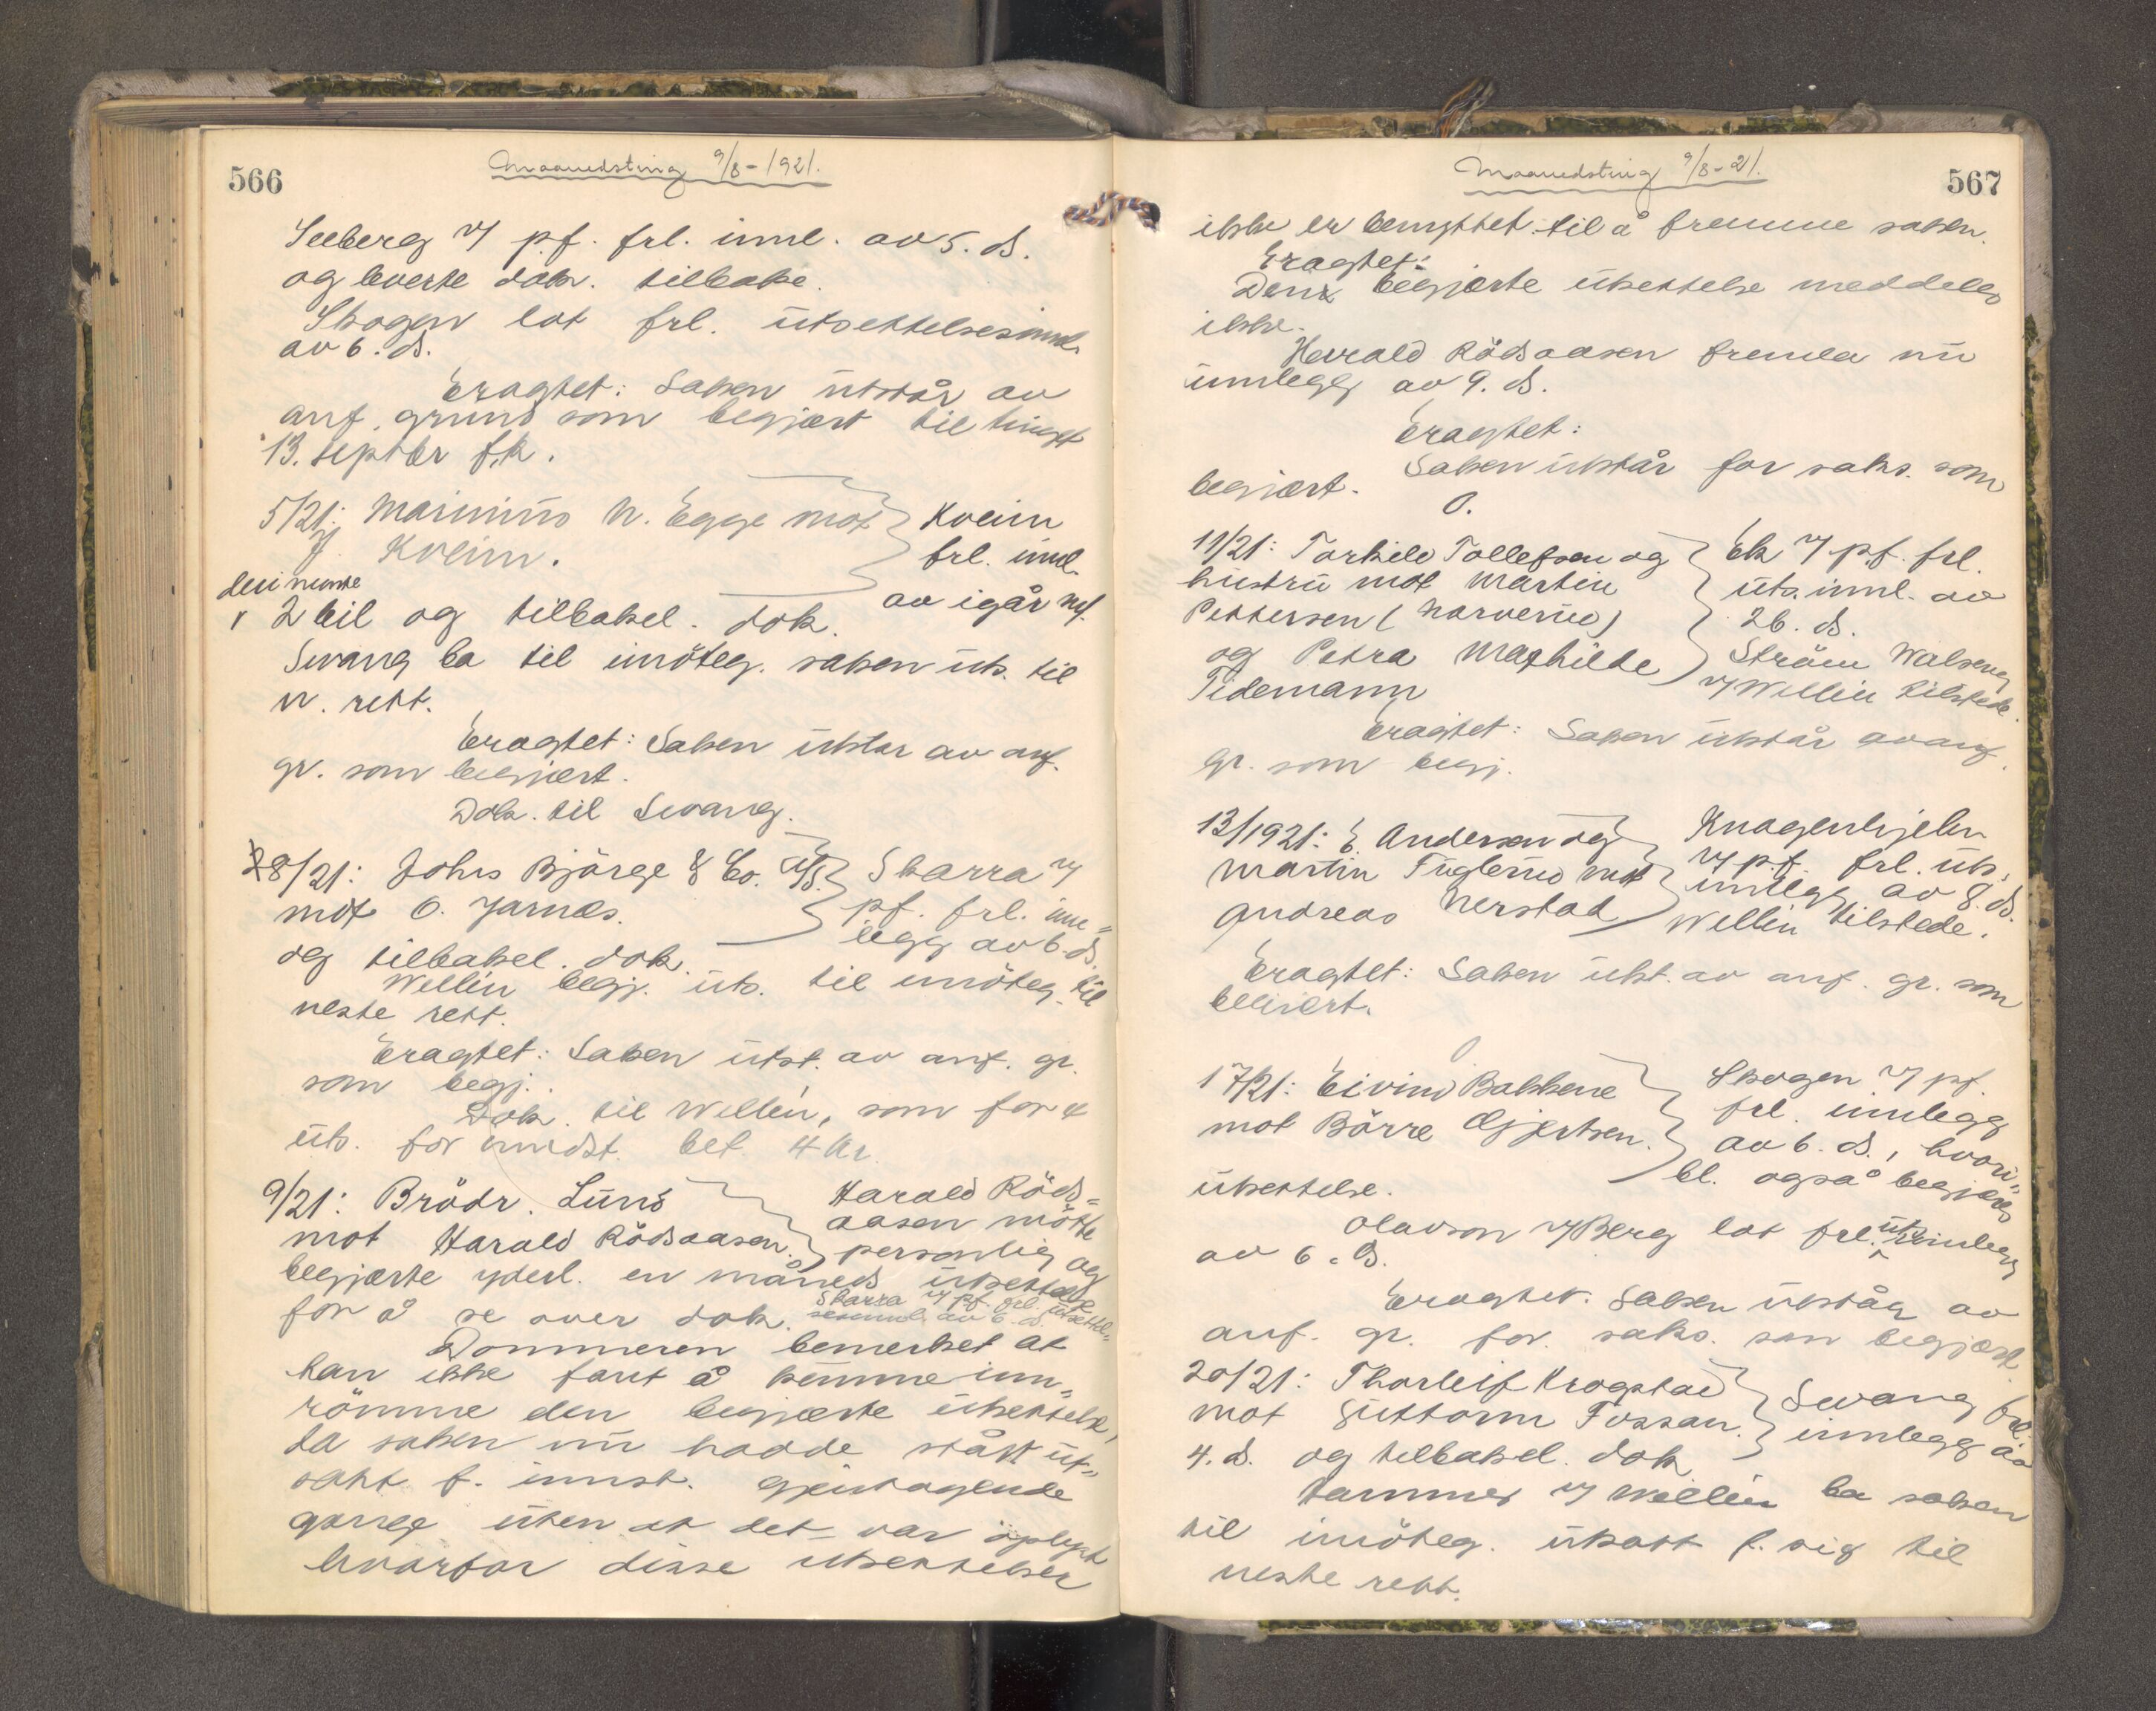 566
Maanedsting 9/8-1921.
Seeberg v/ p.f. frl. innl. av 5. ds.
og leverte dok. tilbake.
Skogen lot frl. utsettelsesinnl.
av 6. ds.
Eragtet: Saken utstår av
anf. grund som begjært til tinget
13. septbr f.k.
5/21: Marinius N. Egge mot
J. Kveim.
Kveim
frl. innl.
av igår
2 bil og tilbakel. dok.
Svang ba til imöteg. saken uts. til
n. rett.
Eragtet: Saken utstar av anf.
gr. som begjært.
Dok. til Svang.
8/21: Johs Bjørge & Co. A/S.
mot O. Jarnæs.
Skarra v/
pf. frl. inn=
legg av 6. ds.
og tilbakel. dok.
Wellén begj. uts. til imöteg. til
neste rett.
Eragtet: Saken utst. av anf. gr.
som begj.
Dok. til Wellén, som for
uts. for bet. 4 kr.
9/21: Brödr. Lund
mot Harald Rödsaasen.
Harald Röds=
aasen mötte
personlig og
begjærte yderl. en måneds utsettelse
for å se over dok. Skarra v/ pf. frl. utsettel=
sesinnl. av 6. ds.
Dommeren bemerket at
han ikke fant å kunne inn=
römme den begjærte utsettelse,
da saken nu hadde stått ut=
satt f. innst. gjentagende
gange uten at det var oplyst
hvorfor disse utsettelser
567
Maanedsting 9/8-21.
ikke er benyttet til å fremme saken.
Eragtet:
Den begjærte utsettelse meddeles
ikke.
Harald Rödsaasen fremla nu
innlegg av 9. ds.
Eragtet:
Saken utstår for saks. som
begjært.
O.
11/21: Torkild Tollefsen og
hustru mot Martin
Pettersen (Narverud)
og Petra Mathilde
Tidemann
Ek v/ p.f. frl.
uts. innl. av
26. ds.
Ström Walseng
v/ Wellén tilstede.
Eragtet: Saken utstår av anf.
gr. som begj.
13/1921: E. Andersen og
Martin Fuglerud mot
Andreas Nerstad
Knagenhjelm
v/ p.f. frl. uts.
innlegg av 8. ds.
Wellén tilstede.
Eragtet: Saken utst. av anf. gr. som
17/21: Eivind Bakkene
mot Börre Gjertsen.
Skogen v/ pf.
frl. innlegg
av 6. ds., hvori=
bl. også begjæres
utsettelse.
Olavson v/ Berg lot frl. uts. innlegg
av 6. ds.
Eragtet. Saken utstår av
anf. gr. for saks. som begjært.
20/21: Thorleif Krogstad
mot Guttorm Fossan.
Svang frl.
innlegg av
4. ds. og tilbakel. dok.
Hammer v/ Wellén ba saken
til imöteg. utsatt f. sig til
neste rett.